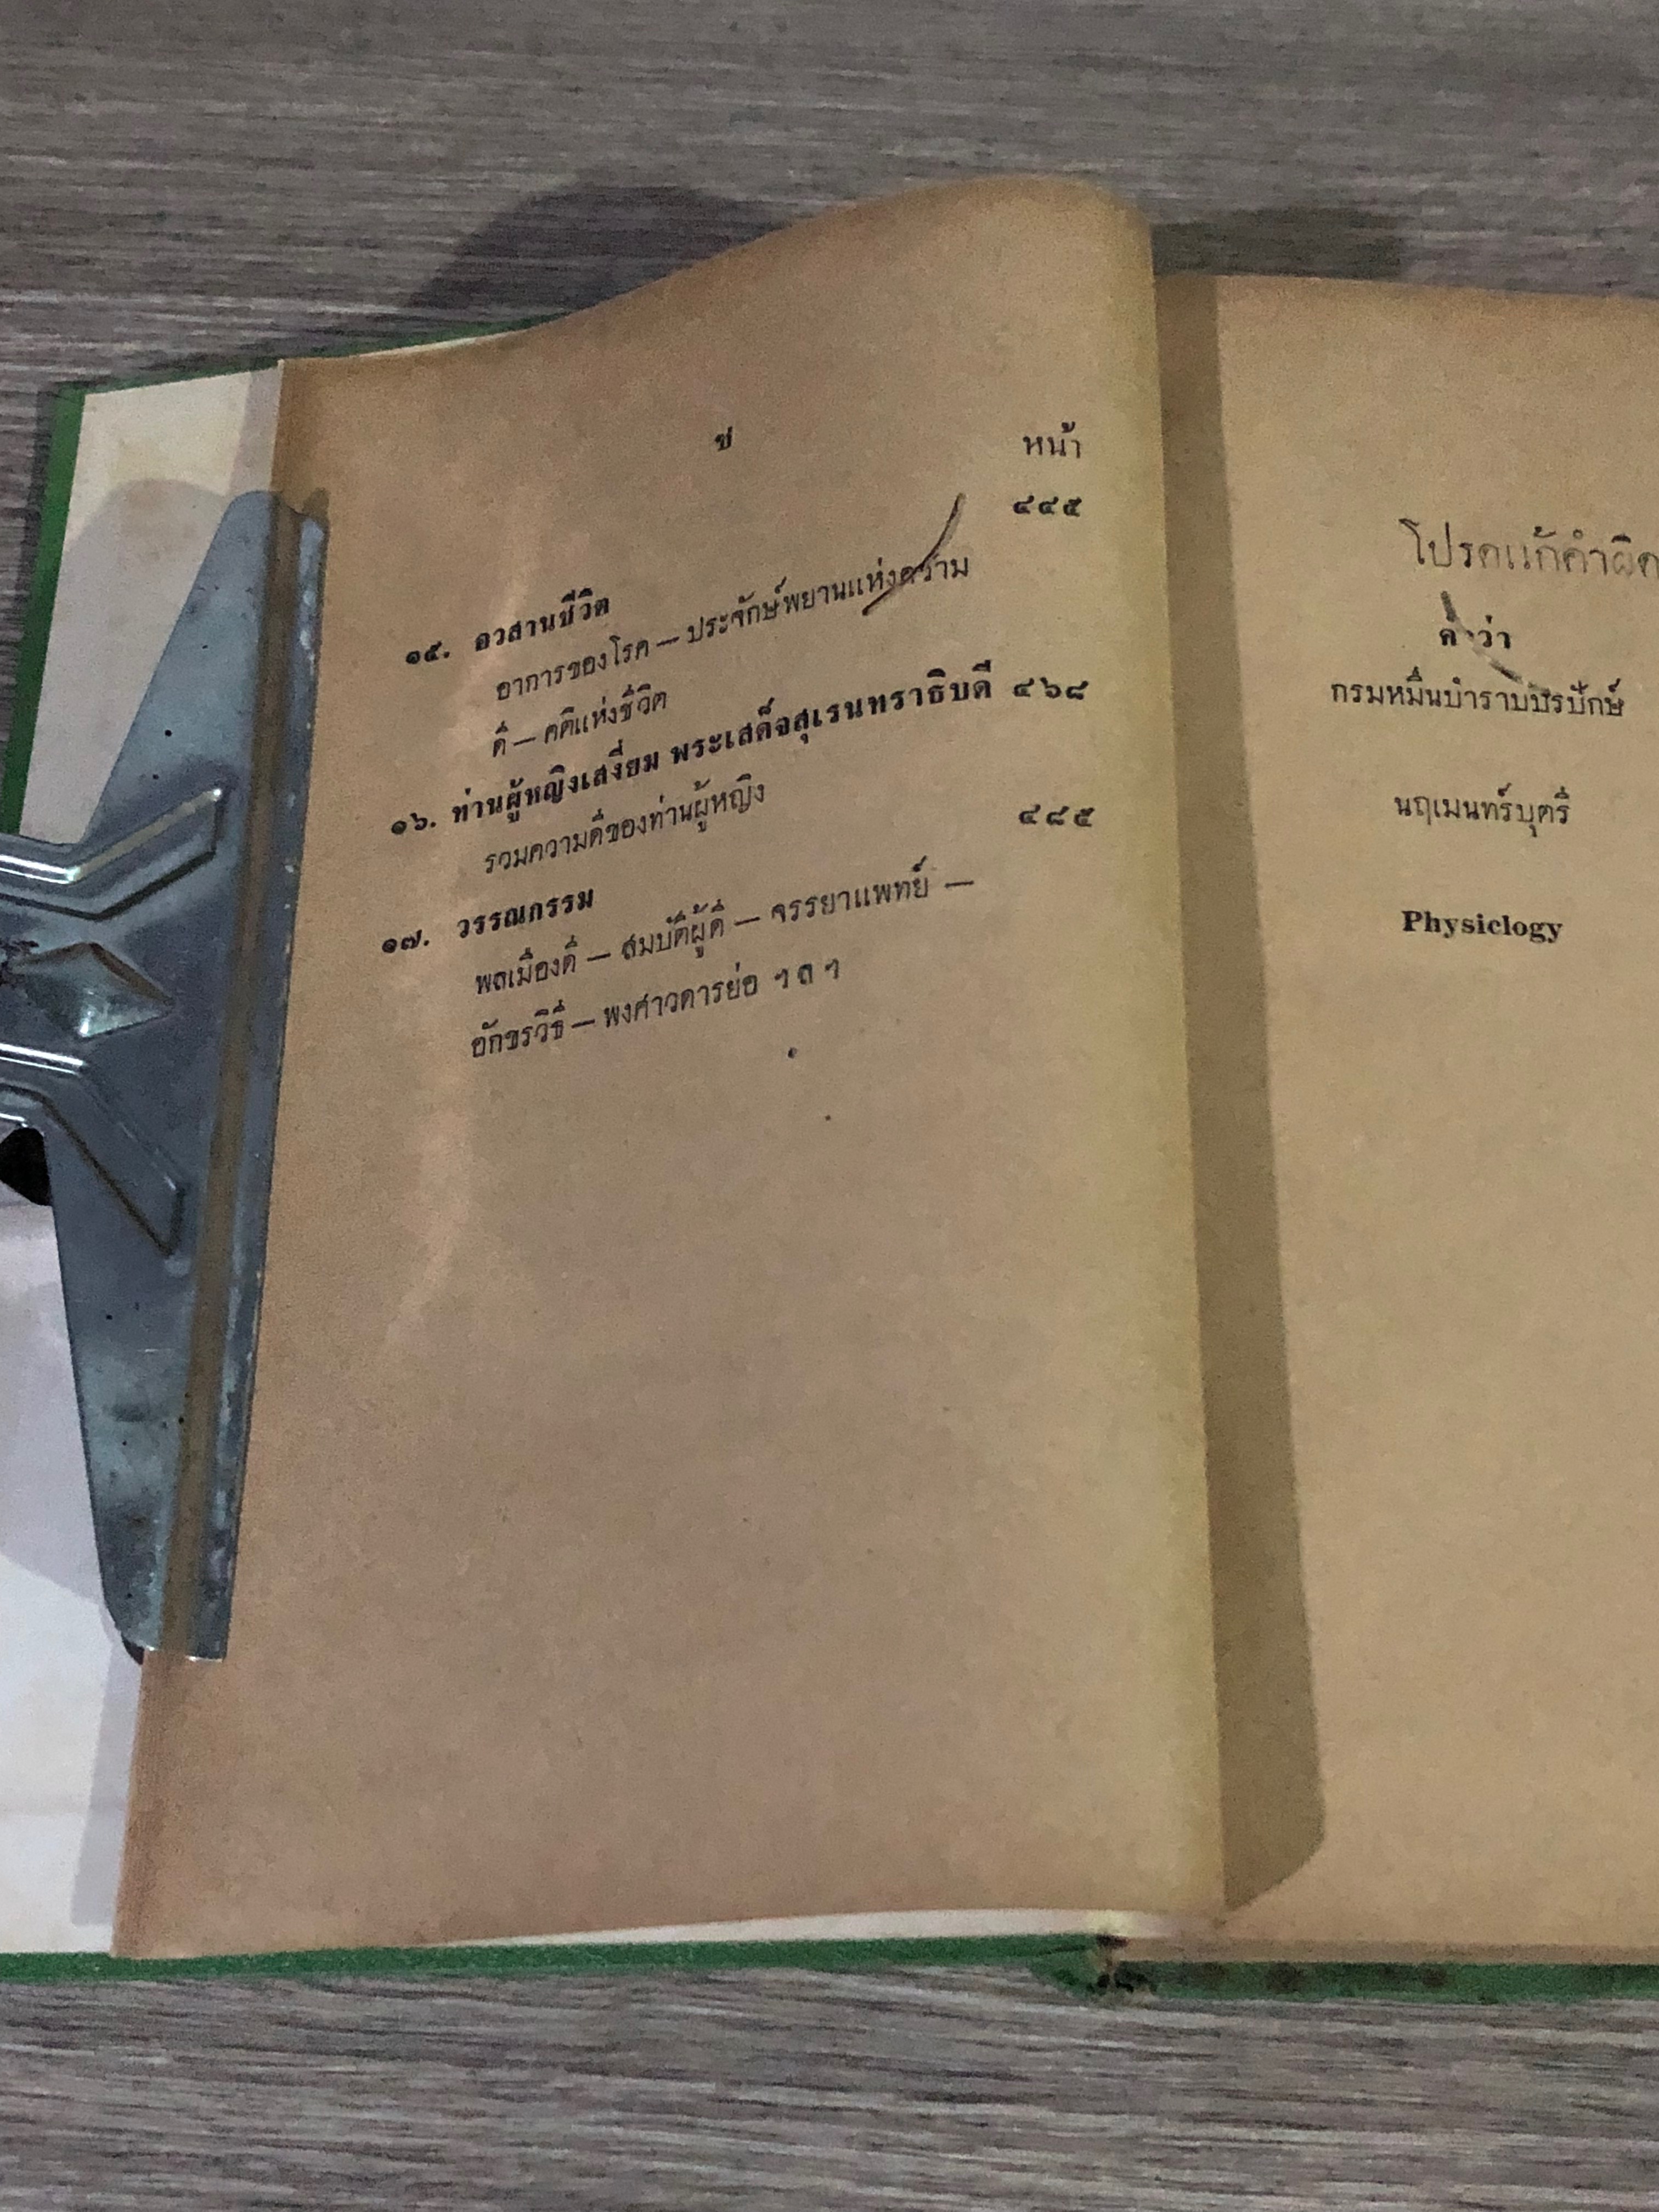 ช
หน้า
๑๕. อวสานชีวิต ๔๔๕
อาการของโรค — ประจักษ์พยานแห่งความ
ดี — คติแห่งชีวิต
๑๖. ท่านผู้หญิงเสงี่ยม พระเสด็จสุเรนทราธิบดี ๔๖๘
รวมความดีของท่านผู้หญิง
๑๗. วรรณกรรม ๔๘๕
พลเมืองดี — สมบัติผู้ดี — จรรยาแพทย์ —
อักขรวิธี — พงศาวดารย่อ ฯลฯ
โปรดแก้คำผิด
คำว่า
กรมหมื่นบำราบปรปักษ์
นฤเมนทร์บุตรี
Physiclogy